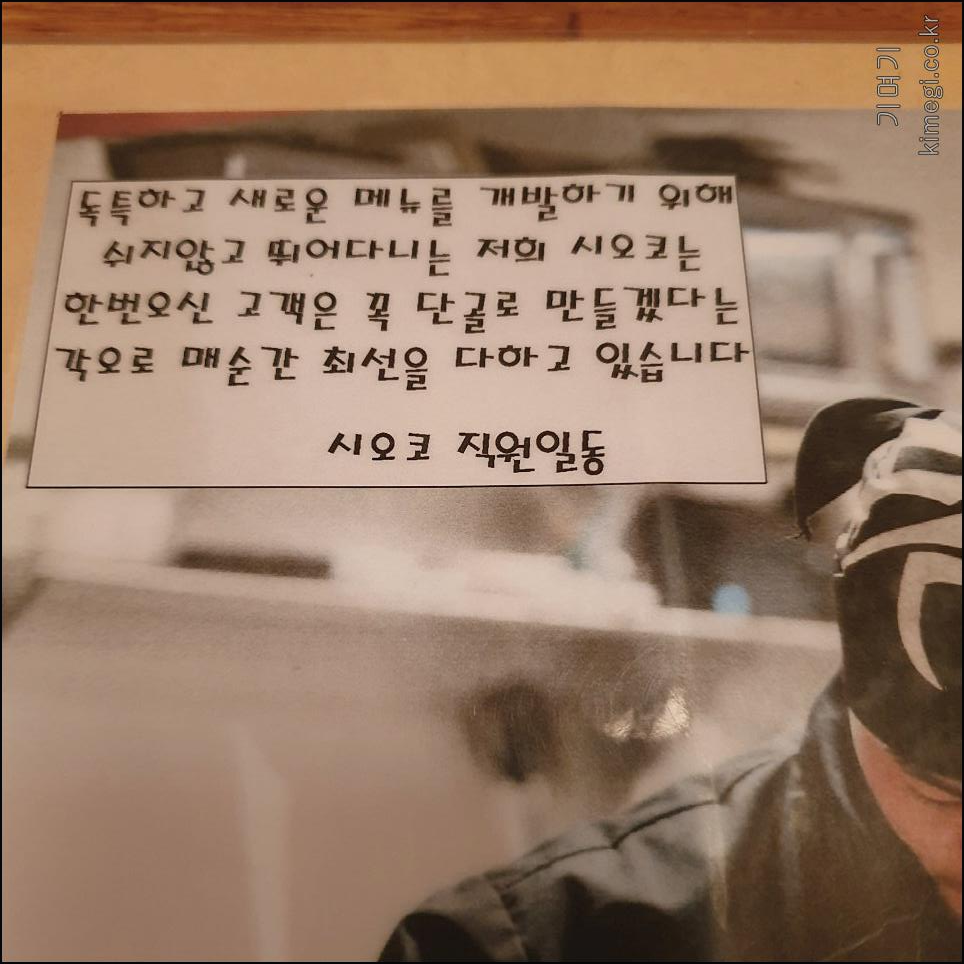 독특하고 새로운 메뉴를 개발하기 위해
쉬지않고 뛰어다니는 저희 시오코는
한번오신 고객은 꼭 단골로 만들겠다는
각오로 매순간 최선을 다하고 있습니다
시오코 직원일동
기머기
kimegi.co.kr